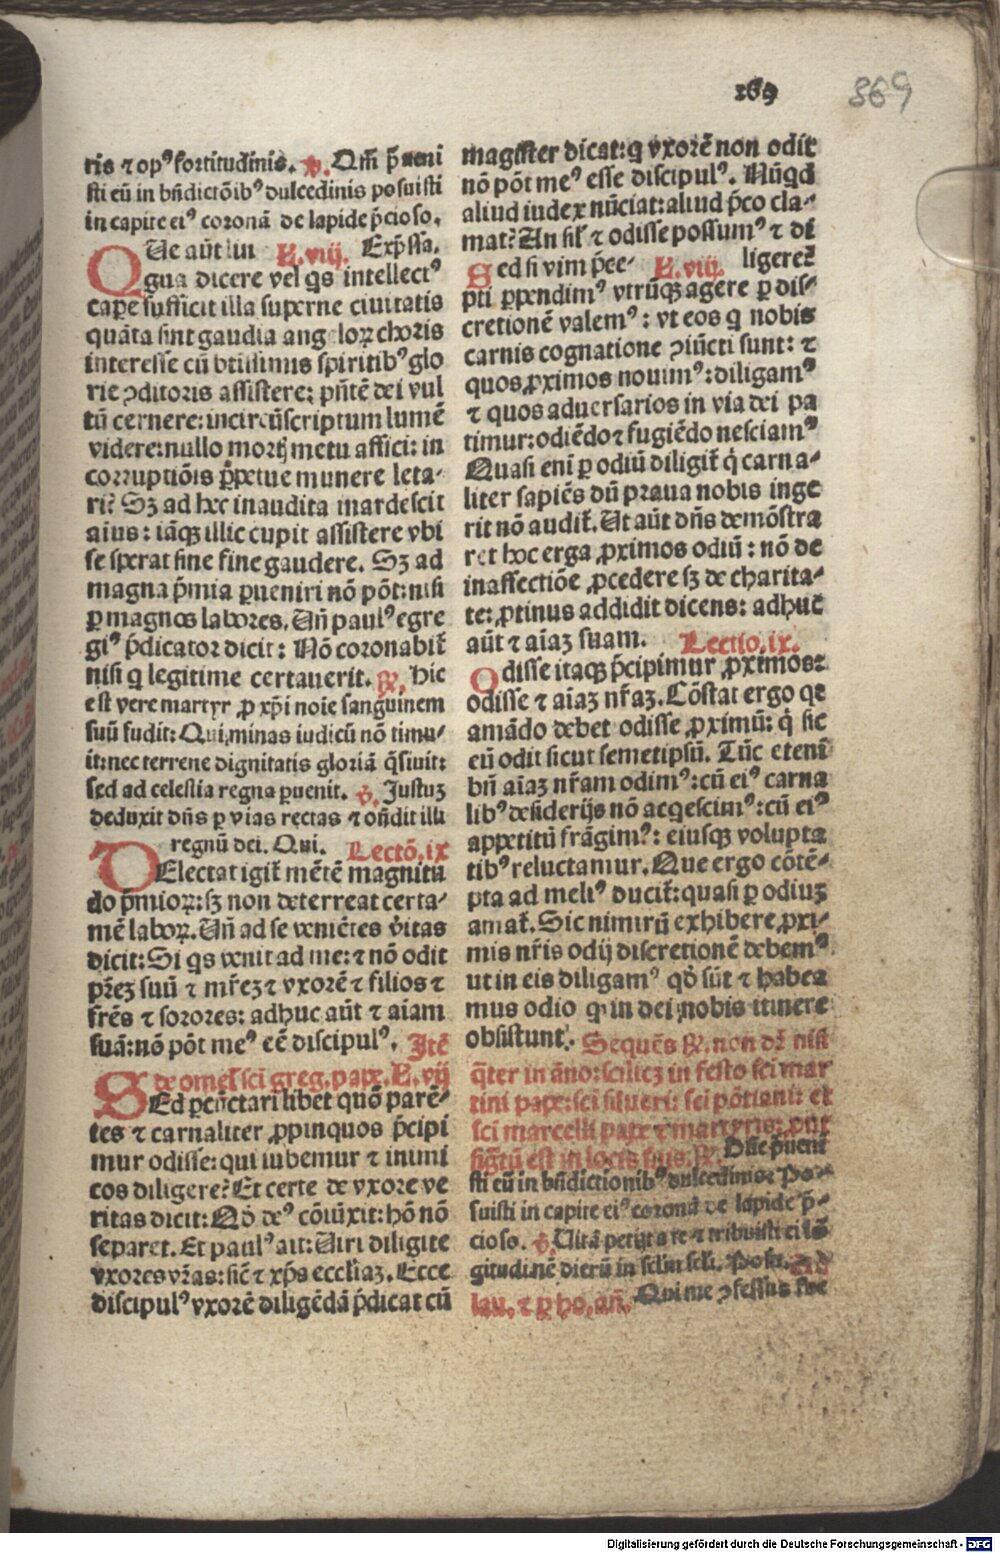 169
869
ris ⁊ opꝰ fortitudinis. ꝟ. Qm̄ p̄ueni
sti eū in bn̄dictōibꝰ dulcedinis posuisti
in capite eiꝰ coronā de lapide p̄cioso.
Ue aūt lin L.viij. Exp̄ssa.
Qgua dicere vel qs intellectꝰ
cape sufficit illa superne ciuitatis
quāta sint gaudia angeloꝝ choris
interesse cū btīssimis spiritibꝰ glo
rie ꝯditoris assistere: pn̄tē dei vul
tū cernere: incircūscriptum lumē
videre: nullo mortꝭ metu affici: in
corruptiōis ꝑpetue munere leta-
ri? Sꝫ ad hec inaudita inardescit
aius: iāqꝫ illic cupit assistere vbi
se sperat sine fine gaudere. Sꝫ ad
magna p̄mia ꝑueniri nō pōt: nisi
ꝑ magnos labores. Un̄ paulꝰ egre
giꝰ p̄dicator dicit: Nō coronabit᷑
nisi q legitime certauerit. ℞. Hic
est vere martyr ꝓ xp̄i noīe sanguinem
suū fudit: Qui minas iudicū nō timu-
it: nec terrene dignitatis gloriā q̄siuit:
sed ad celestia regna ꝑuenit. ꝟ. Justuꝫ
deduxit dn̄s ꝑ vias rectas ⁊ ōn̄dit illi
regnū dei. Qui. Lectō. ix
DElectat igit᷑ mētē magnitu
do p̄mioꝝ: sꝫ non deterreat certa-
mē laboꝝ. Un̄ ad se veniētes v̄itas
dicit: Si qs venit ad me: ⁊ nō odit
pr̄eꝫ suū ⁊ mr̄eꝫ ⁊ vxorē ⁊ filios ⁊
fr̄es ⁊ sorores: adhuc aūt ⁊ aīam
suā: nō pōt meꝰ eē discipulꝰ. Itē
de omel᷑ sci greg. pape. L. vij
SEd ꝑcūctari libet quō parē-
tes ⁊ carnaliter ꝓpinquos p̄cipi
mur odisse: qui iubemur ⁊ inimi
cos diligere? Et certe de vxore ve
ritas dicit: Qd̄ deꝰ cōiūxit: hō nō
separet. Et paulꝰ ait: Uiri diligite
vxores vr̄as: sic̄ ⁊ xp̄s eccliaꝫ. Ecce
discipulꝰ vxorē diligēdā p̄dicat cū
magister dicat: q vxorē non odit
nō pōt meꝰ esse discipulꝰ. Nūqd
aliud iudex nūciat: aliud p̄co cla-
mat? An sil᷑ ⁊ odisse possumꝰ ⁊ di
Sed si vim p̄ce- L. viij. ligere?
pti ꝑpendimꝰ vtrūqꝫ agere ꝑ dis-
cretionē valemꝰ: vt eos q nobis
carnis cognatione ꝯiūcti sunt: ⁊
quos ꝓximos nouimꝰ: diligamꝰ
⁊ quos aduersarios in via dei pa
timur: odiēdo ⁊ fugiēdo nesciamꝰ
Quasi eni ꝑ odiū diligit᷑ q̇ carna-
liter sapiēs dū praua nobis inge
rit nō audit᷑. Ut aūt dn̄s demōstra
ret hoc erga ꝓximos odiū: nō de
inaffectiōe ꝓcedere sꝫ de charita-
te: ꝓtinus addidit dicens: adhuc
aūt ⁊ aīaꝫ suam. Lectio. ix.
Odisse itaqꝫ p̄cipimur ꝓximos:
odisse ⁊ aīaꝫ nr̄aꝫ. Cōstat ergo qꝛ
amādo debet odisse ꝓximū: q̇ sic
eū odit sicut semetipsū. Tūc eteni
bn̄ aīaꝫ nr̄am odimꝰ: cū eiꝰ carna
libꝰ desiderijs nō acqescimꝰ: cū eiꝰ
appetitū frāgimꝰ: eiusqꝫ volupta
tibꝰ reluctamur. Que ergo cōtē-
pta ad meliꝰ ducit᷑: quasi ꝑ odiuꝫ
amat᷑. Sic nimirū exhibere ꝓxi-
mis nr̄is odij discretionē debemꝰ
ut in eis diligamꝰ qd̄ sūt ⁊ habea
mus odio q in dei nobis itinere
obsistunt. Sequēs ℞. non dr̄ nisi
q̄ter in āno: scilicꝫ in festo sci mar
tini pape: sci silueri: sci pōtiani: et
sci marcelli pape ⁊ martyris: put
sig̅tū est in locis suis. ℞. Dn̄e p̄ueni
sti eū in bn̄dictionibꝰ dulcedinis: Po-
suisti in capite eiꝰ coronā de lapide p̄-
cioso. ꝟ. Uitā petijt a te ⁊ tribuisti ei lō
gitudinē dierū in sclm scli. Posu. Ad
lau. ⁊ ꝑ ho. an̄. Qui me ꝯfessus fue
Digitalisierung gefördert durch die Deutsche Forschungsgemeinschaft - DFG